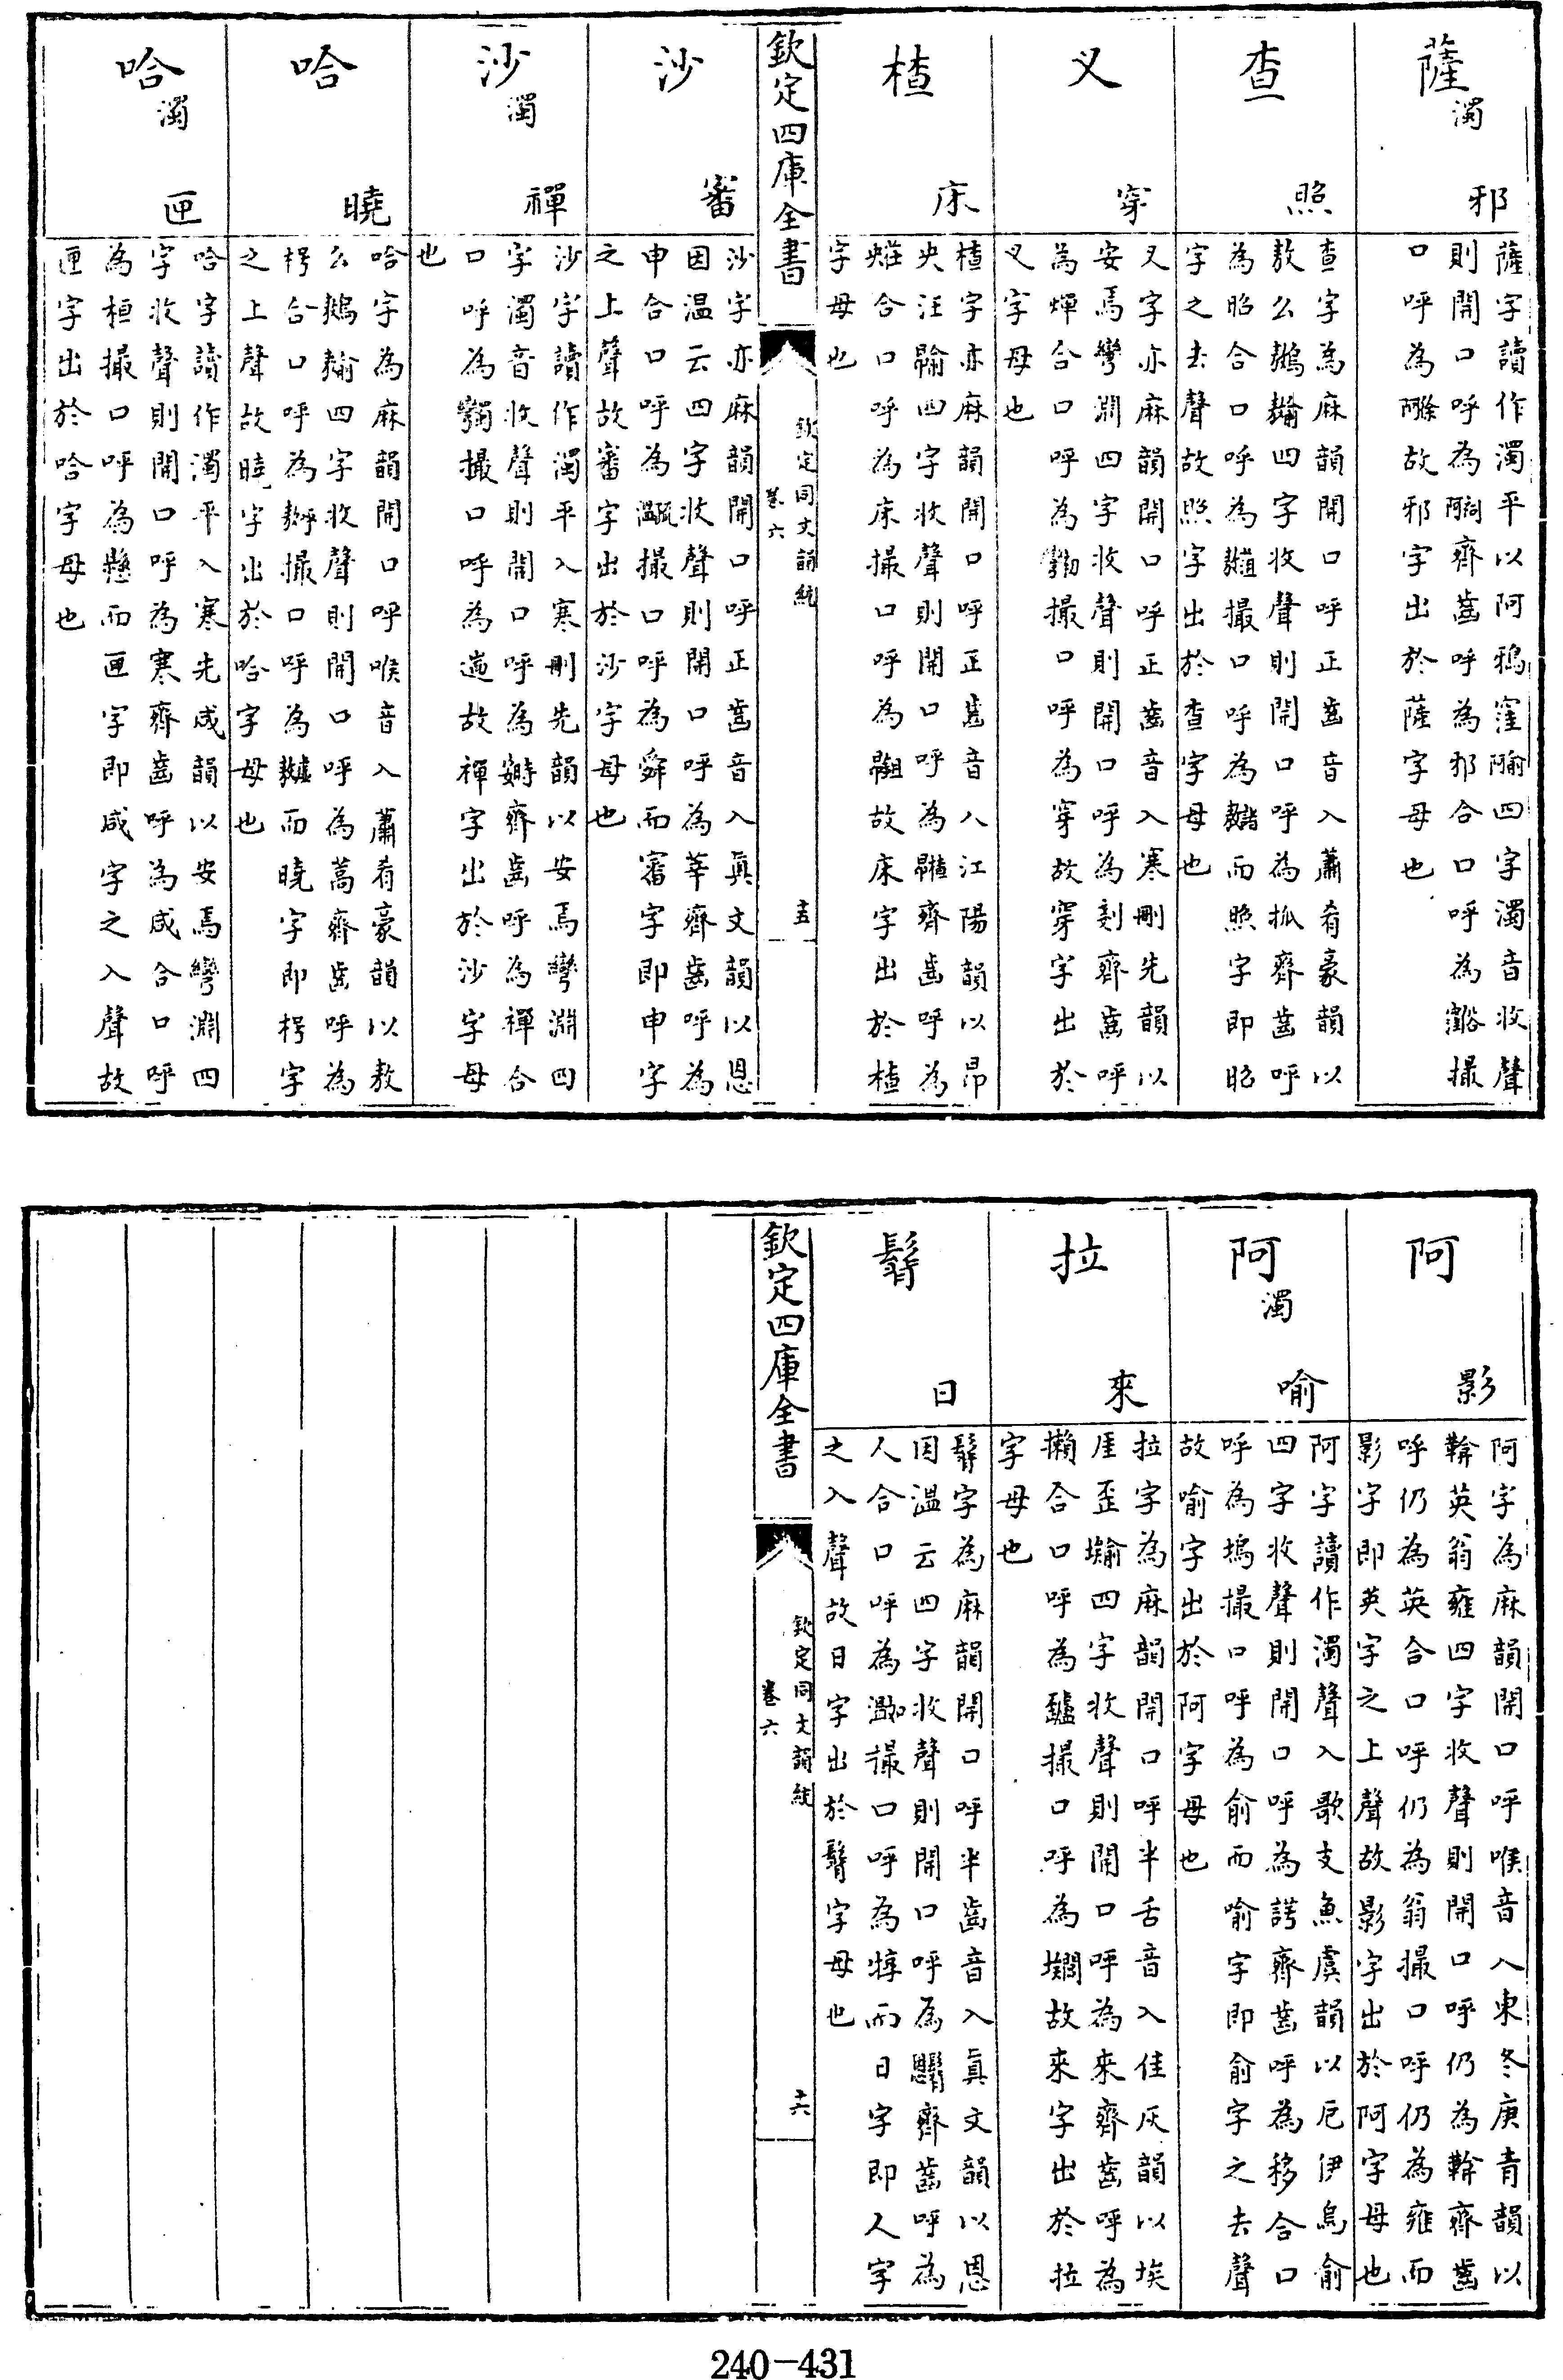 薩濁
邪
薩字讀作濁平以阿鴉窪四字濁音收聲
則開口呼為齊齒呼為邪合口呼為撮
口呼為故邪字出於薩字母也
查
照
查字為麻韻開口呼正齒音入蕭肴豪韻以
敖幺四字收聲則開口呼為抓齊齒呼
為昭合口呼為撮口呼為而照字即昭
字之去聲故照字出於查字母也
叉
穿
叉字亦麻韻開口呼正齒音入寒刪先韻以
安焉彎淵四字收聲則開口呼為剗齊齒呼
為燀合口呼為撮口呼為穿故穿字出於
叉字母也
楂
床
楂字亦麻韻開口呼正齒音入江陽韻以昂
央汪四字收聲則開口呼為齊齒呼為
合口呼為床撮口呼為故床字出於楂
字母也
欽定四庫全書
欽定同文韻統
卷六
十五
沙
審
沙字亦麻韻開口呼正齒音入真文韻以恩
因溫云四字收聲則開口呼為莘齊齒呼為
申合口呼為撮口呼為舜而審字即申字
之上聲故審字出於沙字母也
沙濁
禪
沙字讀作濁平入寒刪先韻以安焉彎淵四
字濁音收聲則開口呼為齊齒呼為禪合
口呼為撮口呼為故禪字出於沙字母
也
哈
曉
哈字為麻韻開口呼喉音入蕭肴豪韻以敖
幺四字收聲則開口呼為蒿齊齒呼為
枵合口呼為撮口呼為而曉字即枵字
之上聲故曉字出於哈字母也
哈濁
匣
哈字讀作濁平入寒先咸韻以安焉彎淵四
字收聲則開口呼為寒齊齒呼為咸合口呼
為桓撮口呼為懸而匣字即咸字之入聲故
匣字出於哈字母也
阿
影
阿字為麻韻開口呼喉音入東冬庚青韻以
英翁雍四字收聲則開口呼仍為齊齒
呼仍為英合口呼仍為翁撮口呼仍為雍而
影字即英字之上聲故影字出於阿字母也
阿濁
喻
阿字讀作濁聲入歌支魚虞韻以厄伊烏俞
四字收聲則開口呼為諤齊齒呼為移合口
呼為塢撮口呼為俞而喻字即俞字之去聲
故喻字出於阿字母也
拉
來
拉字為麻韻開口呼半舌音入佳灰韻以埃
厓歪四字收聲則開口呼為來齊齒呼為
攋合口呼為撮口呼為故來字出於拉
字母也
髯
日
髯字為麻韻開口呼半齒音入真文韻以恩
因溫云四字收聲則開口呼為齊齒呼為
人合口呼為撮口呼為犉而日字即人字
之入聲故日字出於髯字母也
欽定四庫全書
欽定同文韻統
卷六
十六
240-431